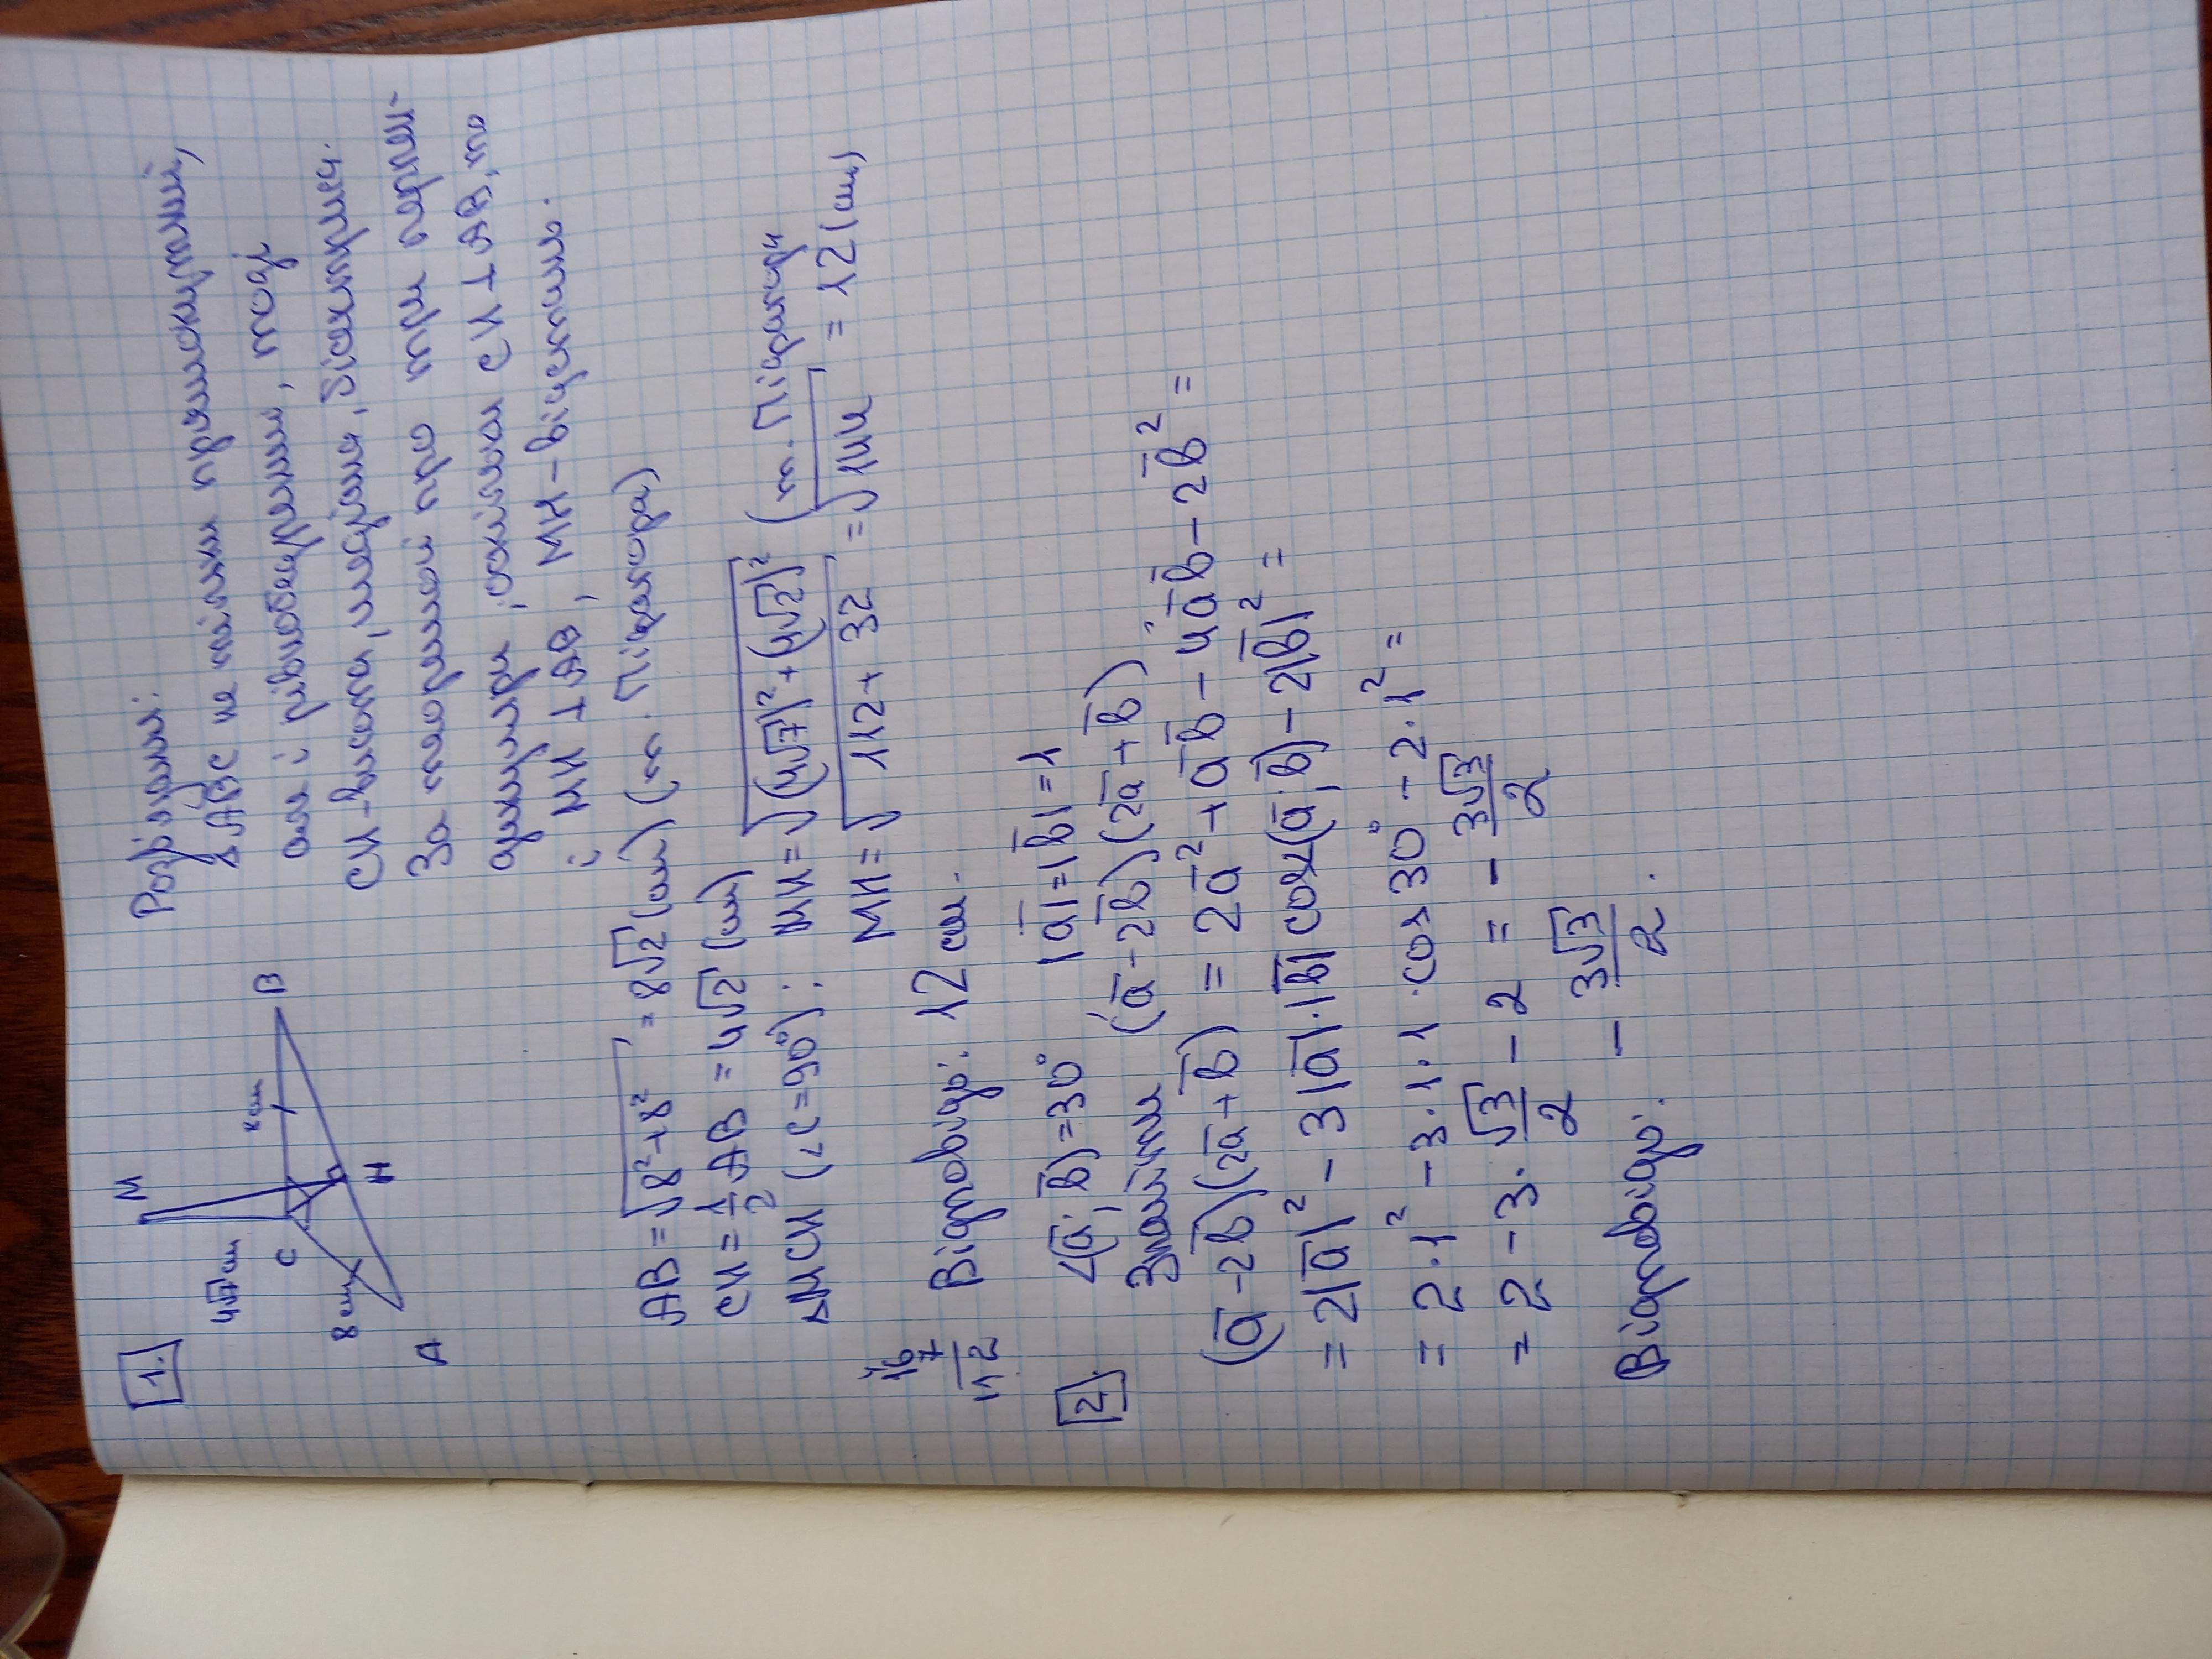 1.
M
4√7 см
C
8 см
B
8 см
H
A
Розв'язання:
∆ABC не тільки прямокутний,
але і рівнобедрений, тоді
CH – висота, медіана, бісектриса.
За теоремою про три перпен-
дикуляри, оскільки CH ⊥ AB, то
і MH ⊥ AB, MH – відстань.
AB = √8²+8² = 8√2 (см) (т. Піфагора)
CH = 1/2 AB = 4√2 (см)
∆MCH (∠C=90°): MH = √(4√7)²+(4√2)² (т. Піфагора)
MH = √112+32 = √144 = 12 (см)
16
7
112
Відповідь: 12 см.
2.
∠(a̅; b̅)=30° |a̅|=|b̅|=1
Знайти (a̅-2b̅)(2a̅+b̅)
(a̅-2b̅)(2a̅+b̅) = 2a̅²+a̅b̅-4a̅b̅-2b̅² =
= 2|a̅|² - 3|a̅|·|b̅| cos(a̅;b̅) - 2|b̅|² =
= 2·1² - 3·1·1·cos 30° - 2·1² =
= 2 - 3·√3/2 - 2 = - 3√3/2
Відповідь: - 3√3/2.